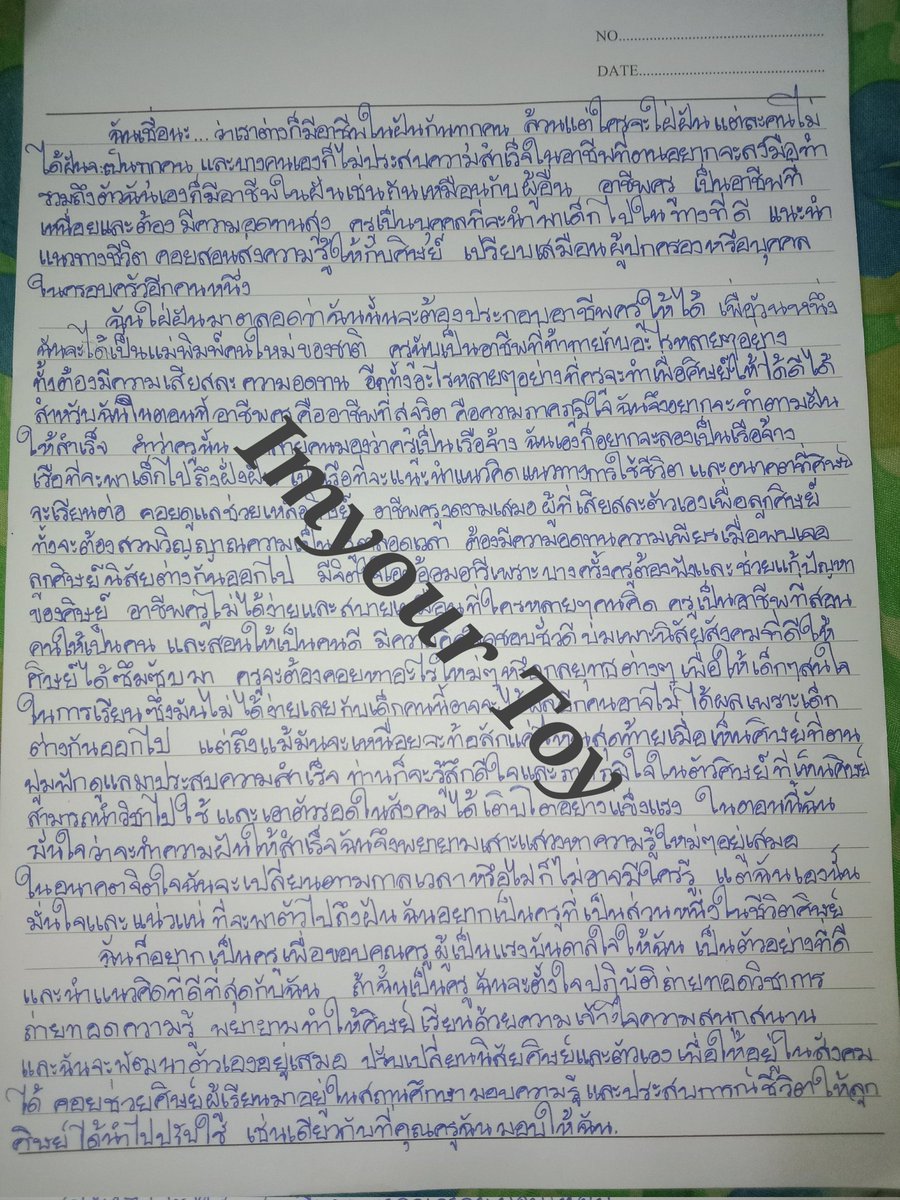 NO.
DATE
ฉันเชื่อนะ... ว่าเราต่างก็มีอาชีพในฝันกันทุกคน ล้วนแต่ใครจะใฝ่ฝัน แต่ละคนไม่
ได้ฝันจะเป็นทุกคน และบางคนเองก็ไม่ประสบความสำเร็จในอาชีพที่ตนอยากจะลงมือทำ
รวมถึงตัวฉันเองก็มีอาชีพในฝันเช่นกันเหมือนกับผู้อื่น อาชีพครู เป็นอาชีพที่
เหนื่อยและต้องมีความอดทนสูง ครูเป็นบุคคลที่จะนำพาเด็กไปในทางที่ดี แนะนำ
แนวทางชีวิต คอยสอนส่งความรู้ให้กับศิษย์ เปรียบเสมือนผู้ปกครองหรือบุคคล
ในครอบครัวอีกคนหนึ่ง
ฉันใฝ่ฝันมาตลอดว่าฉันนั้นจะต้องประกอบอาชีพครูให้ได้ เพื่อวันหนึ่ง
ฉันจะได้เป็นแม่พิมพ์คนใหม่ของชาติ ครูนับเป็นอาชีพที่ท้าทายกับอะไรหลายๆอย่าง
ทั้งต้องมีความเสียสละ ความอดทน อีกทั้งอะไรหลายๆอย่างที่ครูจะทำเพื่อศิษย์ให้ได้ดีได้
สำหรับฉันในตอนนี้ อาชีพครู คืออาชีพที่สุจริต คือความภาคภูมิใจ ฉันจึงอยากจะทำตามฝัน
ให้สำเร็จ คำว่าครูนั้น คนมองว่าครูเป็นเรือจ้าง ฉันเองก็อยากจะลองเป็นเรือจ้าง
เรือที่จะพาเด็กไปถึงฝั่งฝัน เรือที่จะแนะนำแนวคิดแนวทางการใช้ชีวิต และอนาคตที่ศิษย์
จะเรียนต่อ คอยดูแลช่วยเหลือ อาชีพครูงดงามเสมอ ผู้ที่เสียสละตัวเองเพื่อลูกศิษย์
ทั้งจะต้องสวมวิญญาณความเป็น ตลอดเวลา ต้องมีความอดทนความเพียรเมื่อพบเจอ
ลูกศิษย์นิสัยต่างกันออกไป มีจิตใจเอื้อ อารีเพราะบางครั้งครูต้องฟังและช่วยแก้ปัญหา
ของศิษย์ อาชีพครูไม่ได้ง่ายและสบายเหมือนที่ใครหลายๆคนคิด ครูเป็นอาชีพที่สอน
คนให้เป็นคน และสอนให้เป็นคนดี มีความ ชอบชั่วดี บ่มเพาะนิสัยสังคมที่ดีให้
ศิษย์ได้ซึมซับมา ครูจะต้องคอยหาอะไรใหม่ๆหรือกลยุทธต่างๆ เพื่อให้เด็กๆสนใจ
ในการเรียนซึ่งมันไม่ได้ง่ายเลยกับเด็กคนนี้อาจจะได้ อีกคนอาจไม่ได้ผลเพราะเด็ก
ต่างกันออกไป แต่ถึงแม้มันจะเหนื่อยจะท้อสักแค่ไหน สุดท้ายเมื่อเห็นศิษย์ที่ตน
ฟูมฟักดูแลมาประสบความสำเร็จ ท่านก็จะรู้สึกดีใจและภาคภูมิใจในตัวศิษย์ ที่เห็นศิษย์
สามารถนำวิชาไปใช้ และเอาตัวรอดในสังคมได้ เติบโตอย่างแข็งแรง ในตอนนี้ฉัน
มั่นใจว่าจะทำความฝันให้สำเร็จฉันจึงพยายามเสาะแสวงหาความรู้ใหม่ๆอยู่เสมอ
ในอนาคตจิตใจฉันจะเปลี่ยนตามกาลเวลาหรือไม่ก็ไม่อาจมีใครรู้ แต่ฉันเองนั้น
มั่นใจและแน่วแน่ ที่จะพาตัวไปถึงฝัน ฉันอยากเป็นครูที่เป็นส่วนหนึ่งในชีวิตศิษย์
ฉันก็อยากเป็นครูเพื่อขอบคุณครู ผู้เป็นแรงบันดาลใจให้ฉัน เป็นตัวอย่างที่ดี
และนำแนวคิดที่ดีที่สุดกับฉัน ถ้าฉันเป็นครู ฉันจะตั้งใจปฏิบัติถ่ายทอดวิชาการ
ถ่ายทอดความรู้ พยายามทำให้ศิษย์เรียนด้วยความเข้าใจความสนุกสนาน
และฉันจะพัฒนาตัวเองอยู่เสมอ ปรับเปลี่ยนนิสัยศิษย์และตัวเองเพื่อให้อยู่ในสังคม
ได้ คอยช่วยศิษย์ผู้เรียนมาอยู่ในสถานศึกษา มอบความรู้ และประสบการณ์ชีวิตให้ลูก
ศิษย์ได้นำไปปรับใช้ เช่นเดียวกับที่คุณครูฉันมอบให้ฉัน.
Imyour Toy